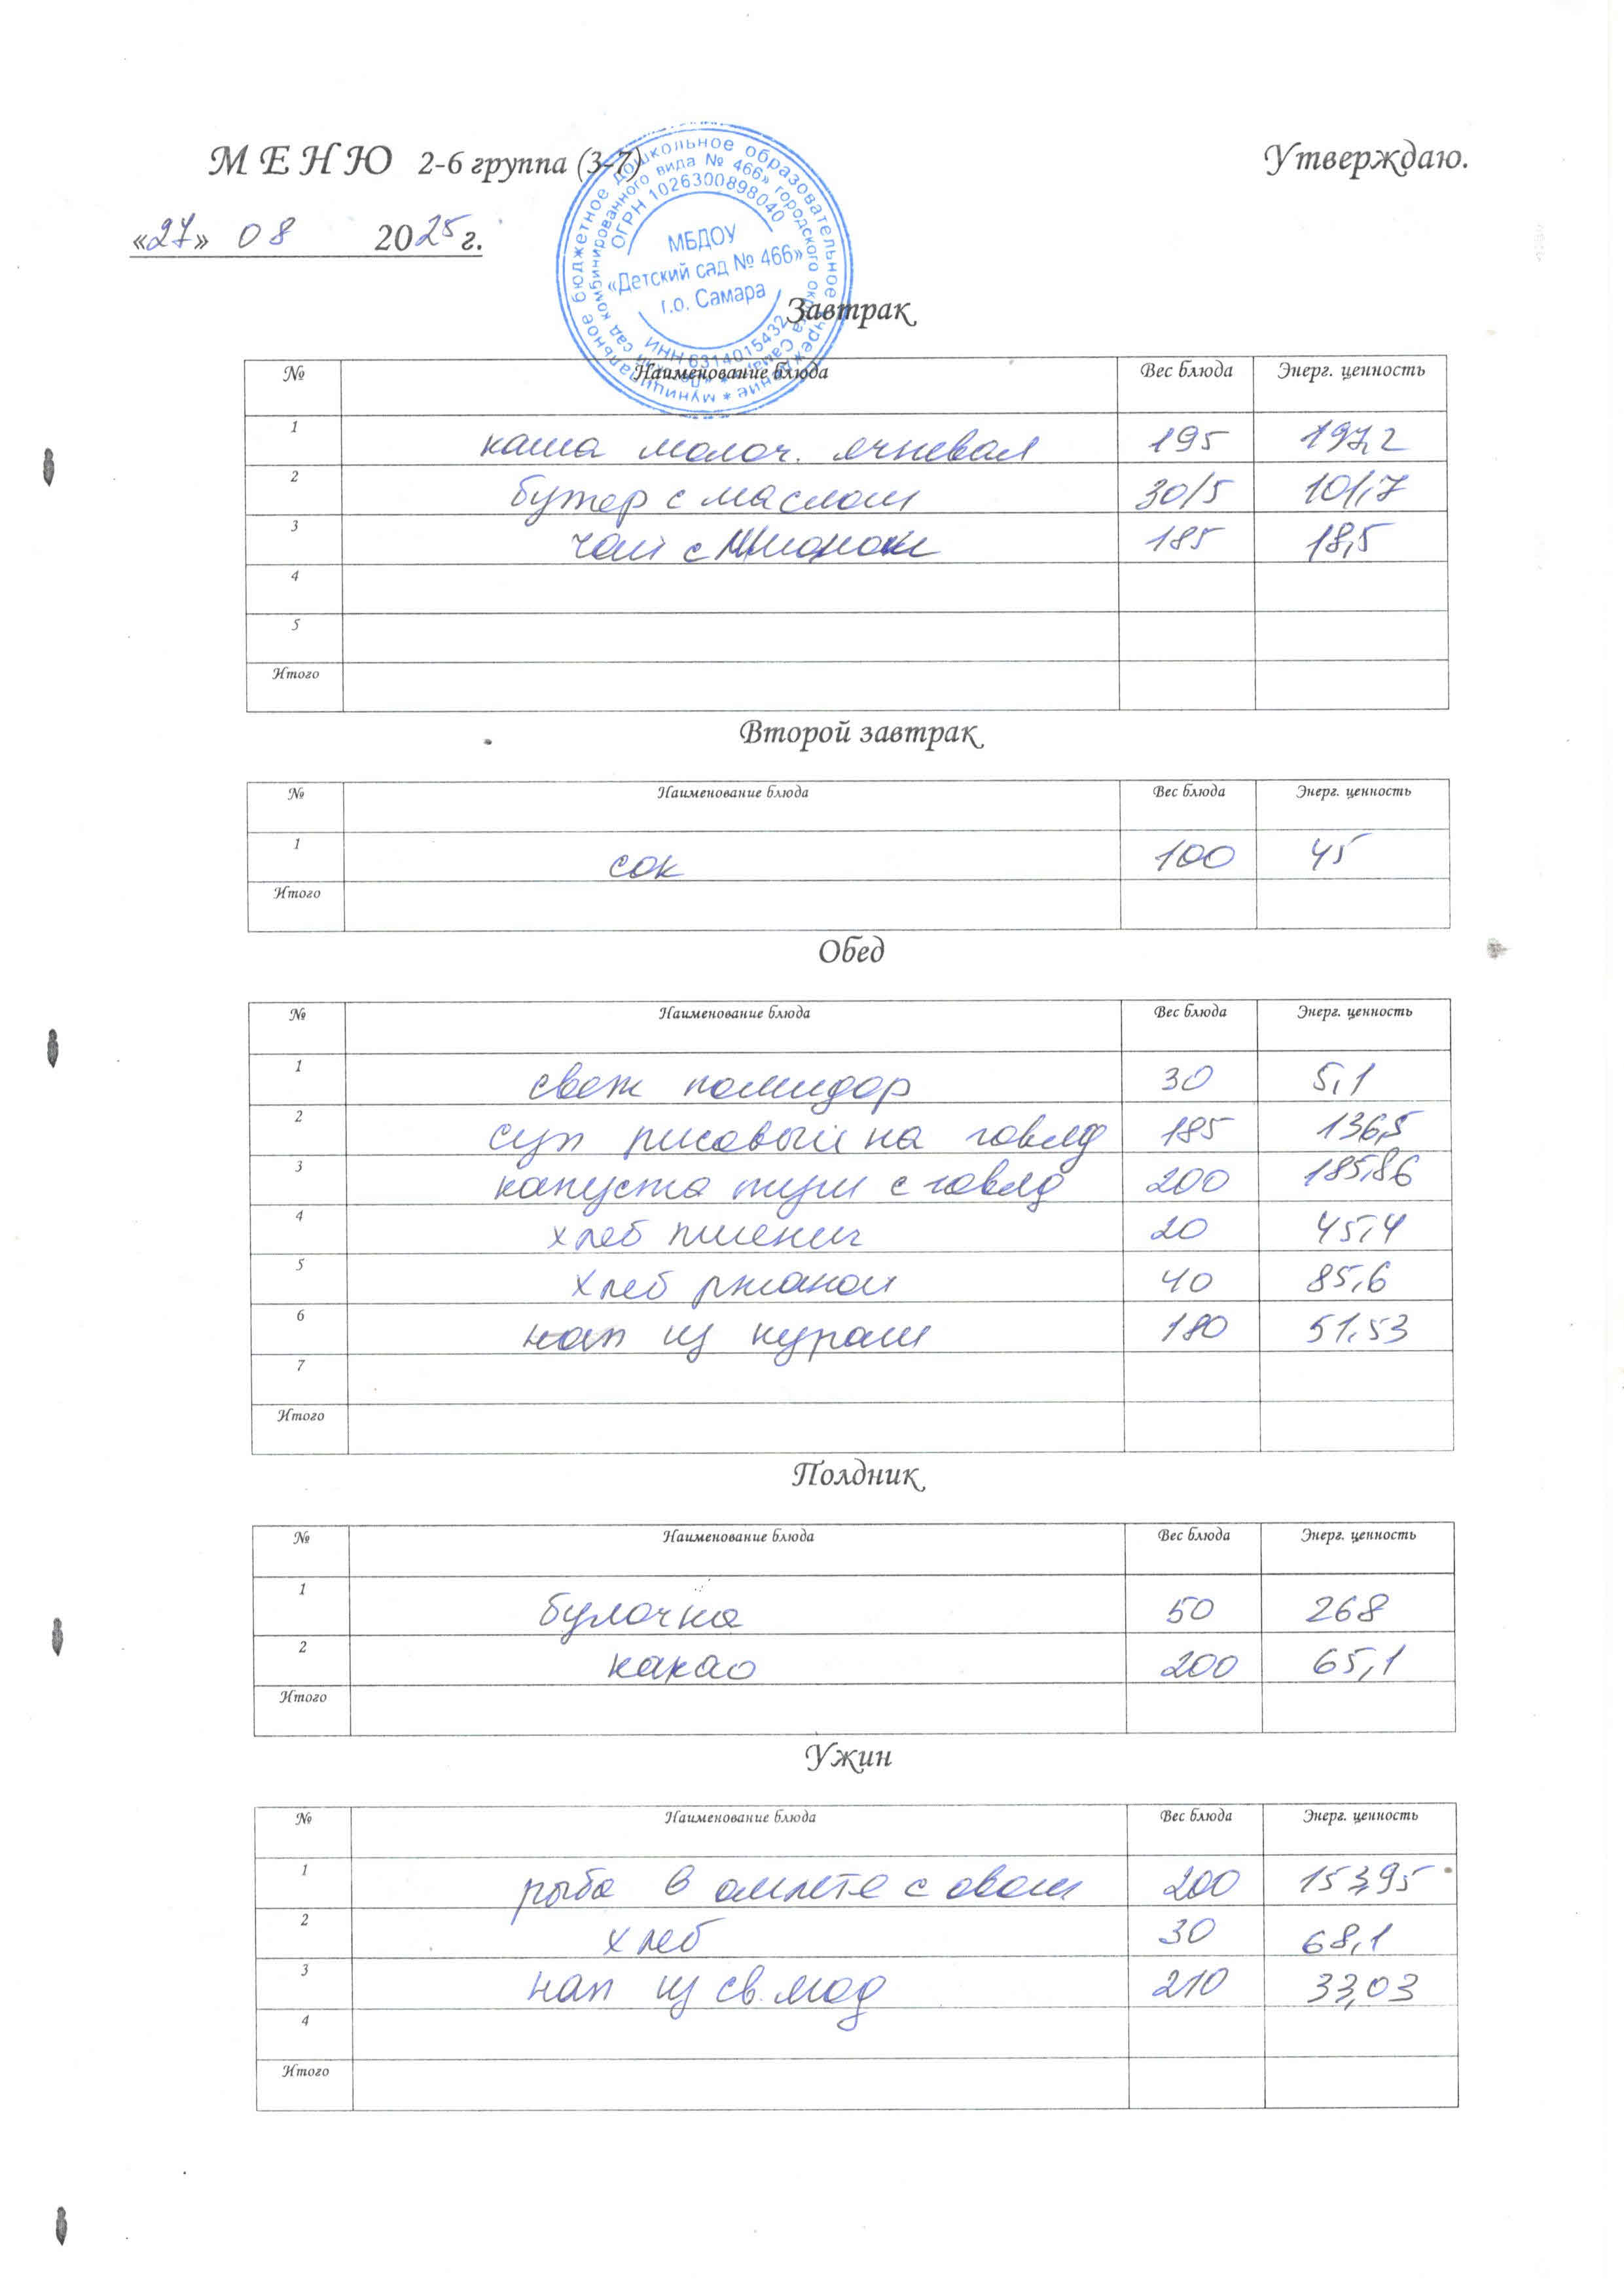 МЕНЮ 2-6 группа (3-7)
Утверждаю.
«27» 08 2025 г.
муниципальное бюджетное дошкольное образовательное учреждение
«Детский сад комбинированного вида № 466» городского округа Самара
ОГРН 1026300898040
МБДОУ
«Детский сад № 466»
г.о. Самара
ИНН 6314015432
Завтрак
№ Наименование блюда Вес блюда Энерг. ценность
1 каша молоч. ячневая 195 197,2
2 бутер с маслом 30/5 101,7
3 чай с 185 18,5
4
5
Итого
Второй завтрак
№ Наименование блюда Вес блюда Энерг. ценность
1 сок 100 45
Итого
Обед
№ Наименование блюда Вес блюда Энерг. ценность
1 свеж помидор 30 5,1
2 суп рисовый на говяд 185 136,5
3 капуста туш с говяд 200 185,86
4 хлеб пшенич 20 45,4
5 хлеб ржаной 40 85,6
6 нап из кураги 180 51,53
7
Итого
Полдник
№ Наименование блюда Вес блюда Энерг. ценность
1 булочка 50 268
2 какао 200 65,1
Итого
Ужин
№ Наименование блюда Вес блюда Энерг. ценность
1 рыба в омлете с овощ 200 153,95
2 хлеб 30 68,1
3 нап из св. 210 33,03
4
Итого